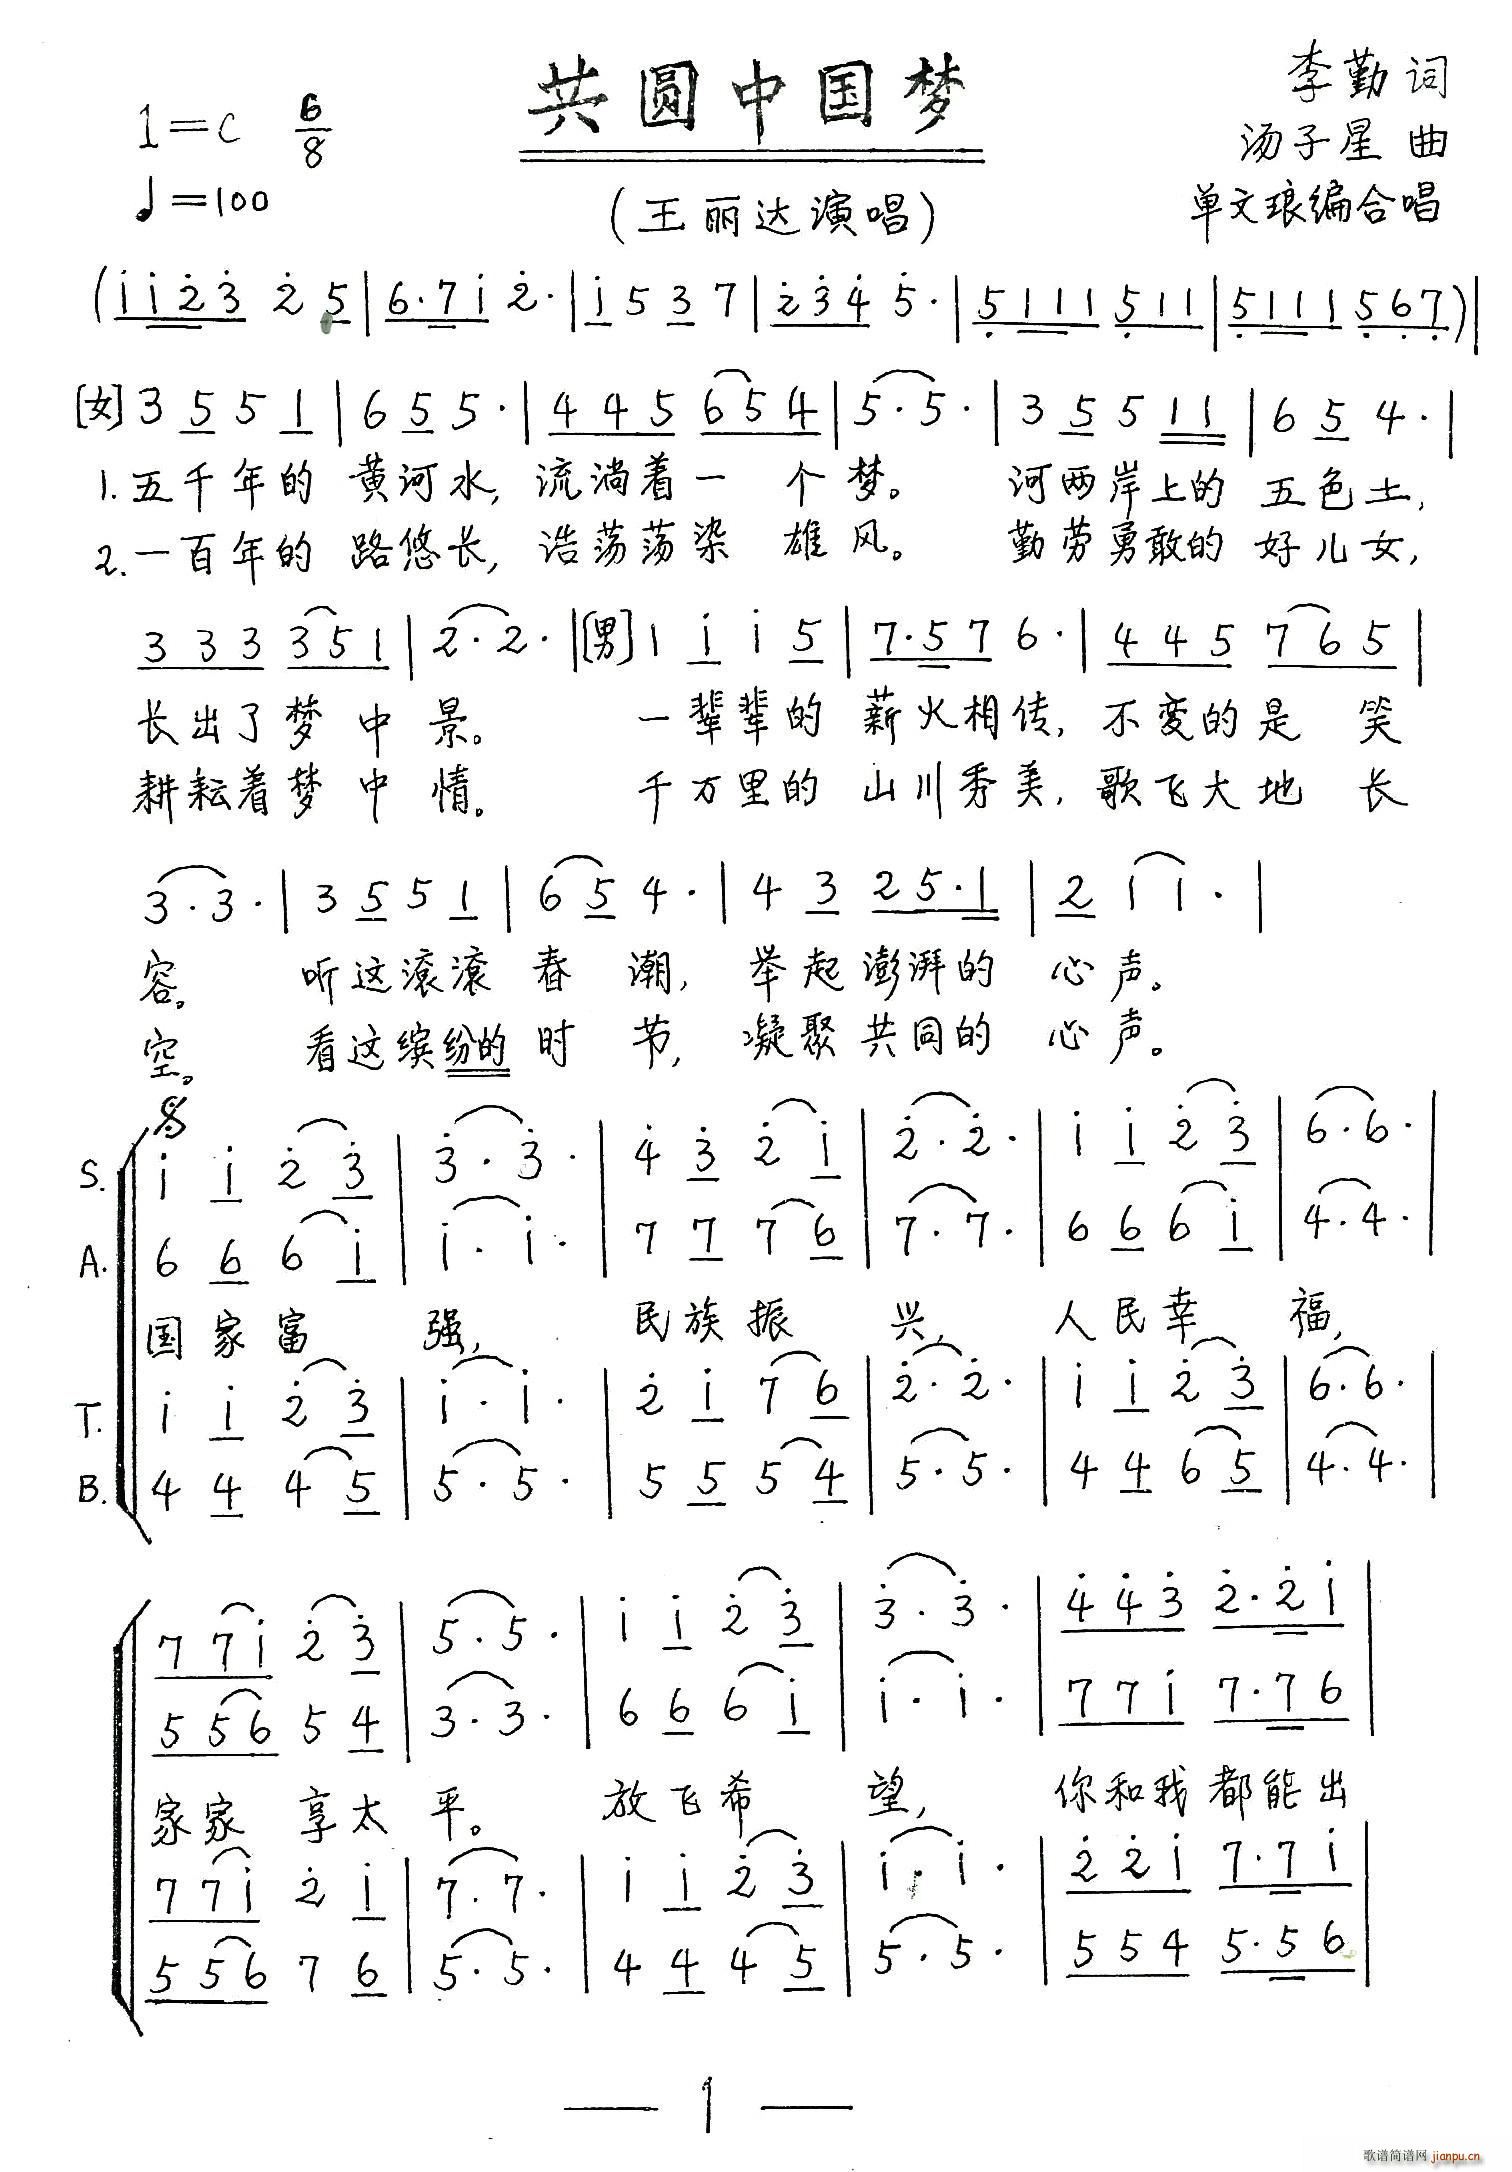 共圆中国梦
李勤词
1=C 6/8
汤子星 曲
♩=100
(王丽达演唱)
单文琅编合唱
(i i 2̇ 3̇ 2̇ 5 | 6·7 i 2̇· | i 5 3 7 | 2̇ 3̇ 4̇ 5̇· | 5̣ 1 1 1 5̣ 1 1 | 5̣ 1 1 1 5̣ 6̣ 7̣) |
[女] 3 5 5 1 | 6 5 5· | 4 4 5 6 5 4 | 5· 5· | 3 5 5 1 1 | 6 5 4· |
1. 五千年的 黄河水, 流淌着一 个 梦。 河两岸上的 五色土,
2. 一百年的 路悠长, 浩荡荡染 雄 风。 勤劳勇敢的 好儿女,
3 3 3 3 5 1 | 2· 2· | [男] 1 i i 5 | 7·5 7 6· | 4 4 5 7 6 5 |
长出了梦 中 景。 一辈辈的 薪火相传, 不变的是 笑
耕耘着梦 中 情。 千万里的 山川秀美, 歌飞大地 长
3· 3· | 3 5 5 1 | 6 5 4· | 4 3 2 5·1 | 2 1 1· |
容。 听这滚滚 春 潮, 举起澎湃的 心声。
空。 看这缤纷的 时 节, 凝聚共同的 心声。
S. i i 2̇ 3̇ | 3̇· 3̇· | 4̇ 3̇ 2̇ i | 2̇· 2̇· | i i 2̇ 3̇ | 6· 6· |
A. 6 6 6 i | i· i· | 7 7 7 6 | 7· 7· | 6 6 6 i | 4· 4· |
国家富 强, 民族振 兴, 人民幸 福,
T. i i 2̇ 3̇ | i· i· | 2 i 7 6 | 2̇· 2̇· | i i 2̇ 3̇ | 6· 6· |
B. 4 4 4 5 | 5· 5· | 5 5 5 4 | 5· 5· | 4 4 6 5 | 4· 4· |
7 7 i 2̇ 3̇ | 5· 5· | i i 2̇ 3̇ | 3̇· 3̇· | 4̇ 4̇ 3̇ 2̇·2̇ i |
5 5 6 5 4 | 3· 3· | 6 6 6 i | i· i· | 7 7 i 7·7 6 |
家家 享太 平。 放飞希 望, 你和我都能出
7 7 i 2̇ i | 7· 7· | i i 2̇ 3̇ | i· i· | 2̇ 2̇ i 7·7 i |
5 5 6 7 6 | 5· 5· | 4 4 4 5 | 5· 5· | 5 5 4 5·5 6 |
— 1 —
歌谱简谱网 jianpu.cn